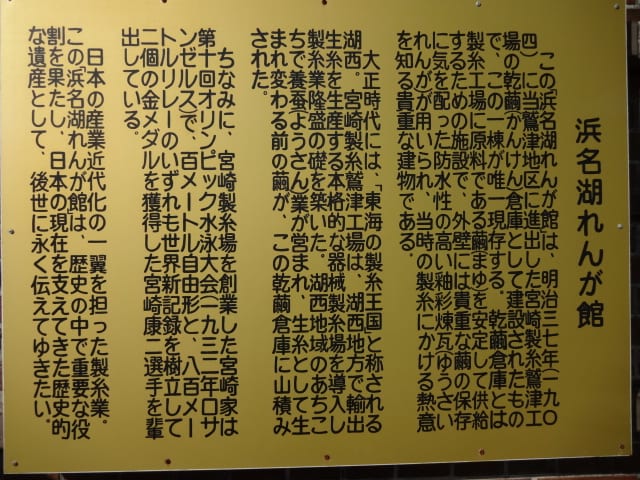 浜名湖れんが館
この「浜名湖れんが館」は、明治三七年(一九〇
四)に当鷲津地区に進出した宮崎製糸鷲津工
場の乾繭(かんけん)倉庫として建設されたもの
で、この一棟が唯一現存する。乾繭倉庫とは
製糸工場に原料である繭(まゆ)を安定して供給
するための施設で、外壁には貴重な繭の保存
に気を配った防水性の高い釉彩煉瓦(ゆうさい
れんが)が用いられ、当時の製糸にかける熱意
を知る貴重な建物である。
大正時代には、「東海の製糸王国」と称される
湖西。宮崎製糸鷲津工場は、湖西地方で輸出
生糸を生産する本格的な器械製糸場を導入し
製糸業隆盛の礎を築いた。湖西地域のあちこ
ちで養蚕(ようさん)業が営まれ、生糸として生
まれ変わる前の繭が、この乾繭倉庫に山積み
された。
ちなみに、宮崎製糸場を創業した宮崎家は
第十回オリンピック水泳大会(一九三二年ロサ
ンゼルス)で、百メートル自由形と、八百メー
トルリレーのいずれも世界新記録を樹立して
二個の金メダルを獲得した宮崎康二選手を輩
出している。
日本の産業近代化の一翼を担った製糸業。
この浜名湖れんが館は、歴史の中で重要な役
割を果たし、日本の現在を支えてきた歴史的
な遺産として、後世に永く伝えてゆきたい。